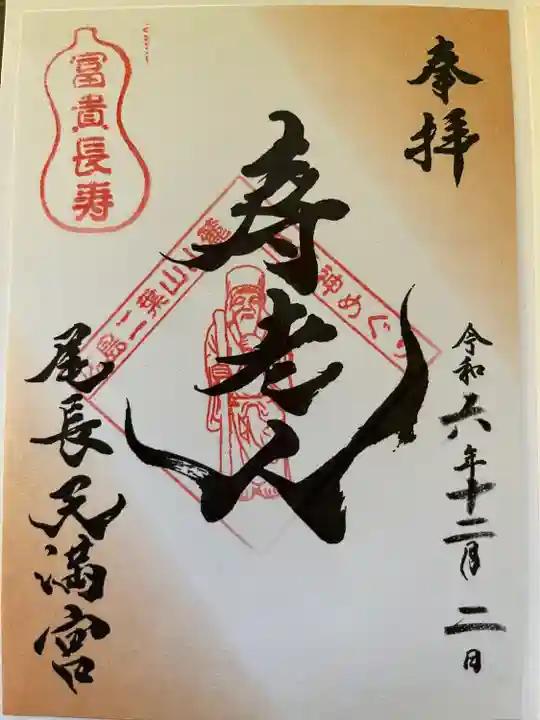 奉拝
令和六年十二月二日
寿老人
神めぐり
二葉山山麓
富貴長寿
尾長天満宮